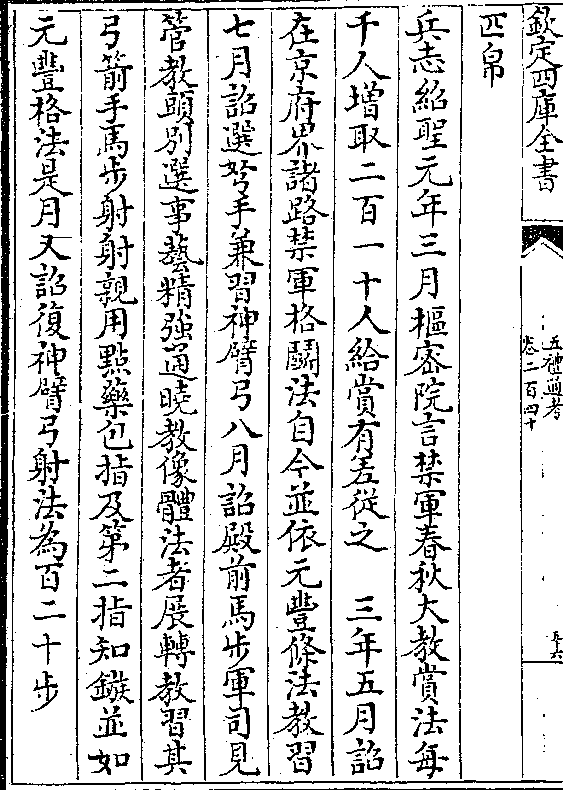 欽定四庫全書
五禮通考
卷二百四十
五十六
匹帛
兵志紹聖元年三月樞密院言禁軍春秋大教賞法每
千人增取二百一十人給賞有差從之　三年五月詔
在京府界諸路禁軍格鬭法自今並依元豐條法教習
七月詔選弩手兼習神臂弓八月詔殿前馬步軍司見
管教頭別選事藝精強通曉教像體法者展轉教習其
弓箭手馬步射射親用點藥包指及第二指知鏃並如
元豐格法是月又詔復神臂弓射法為百二十步